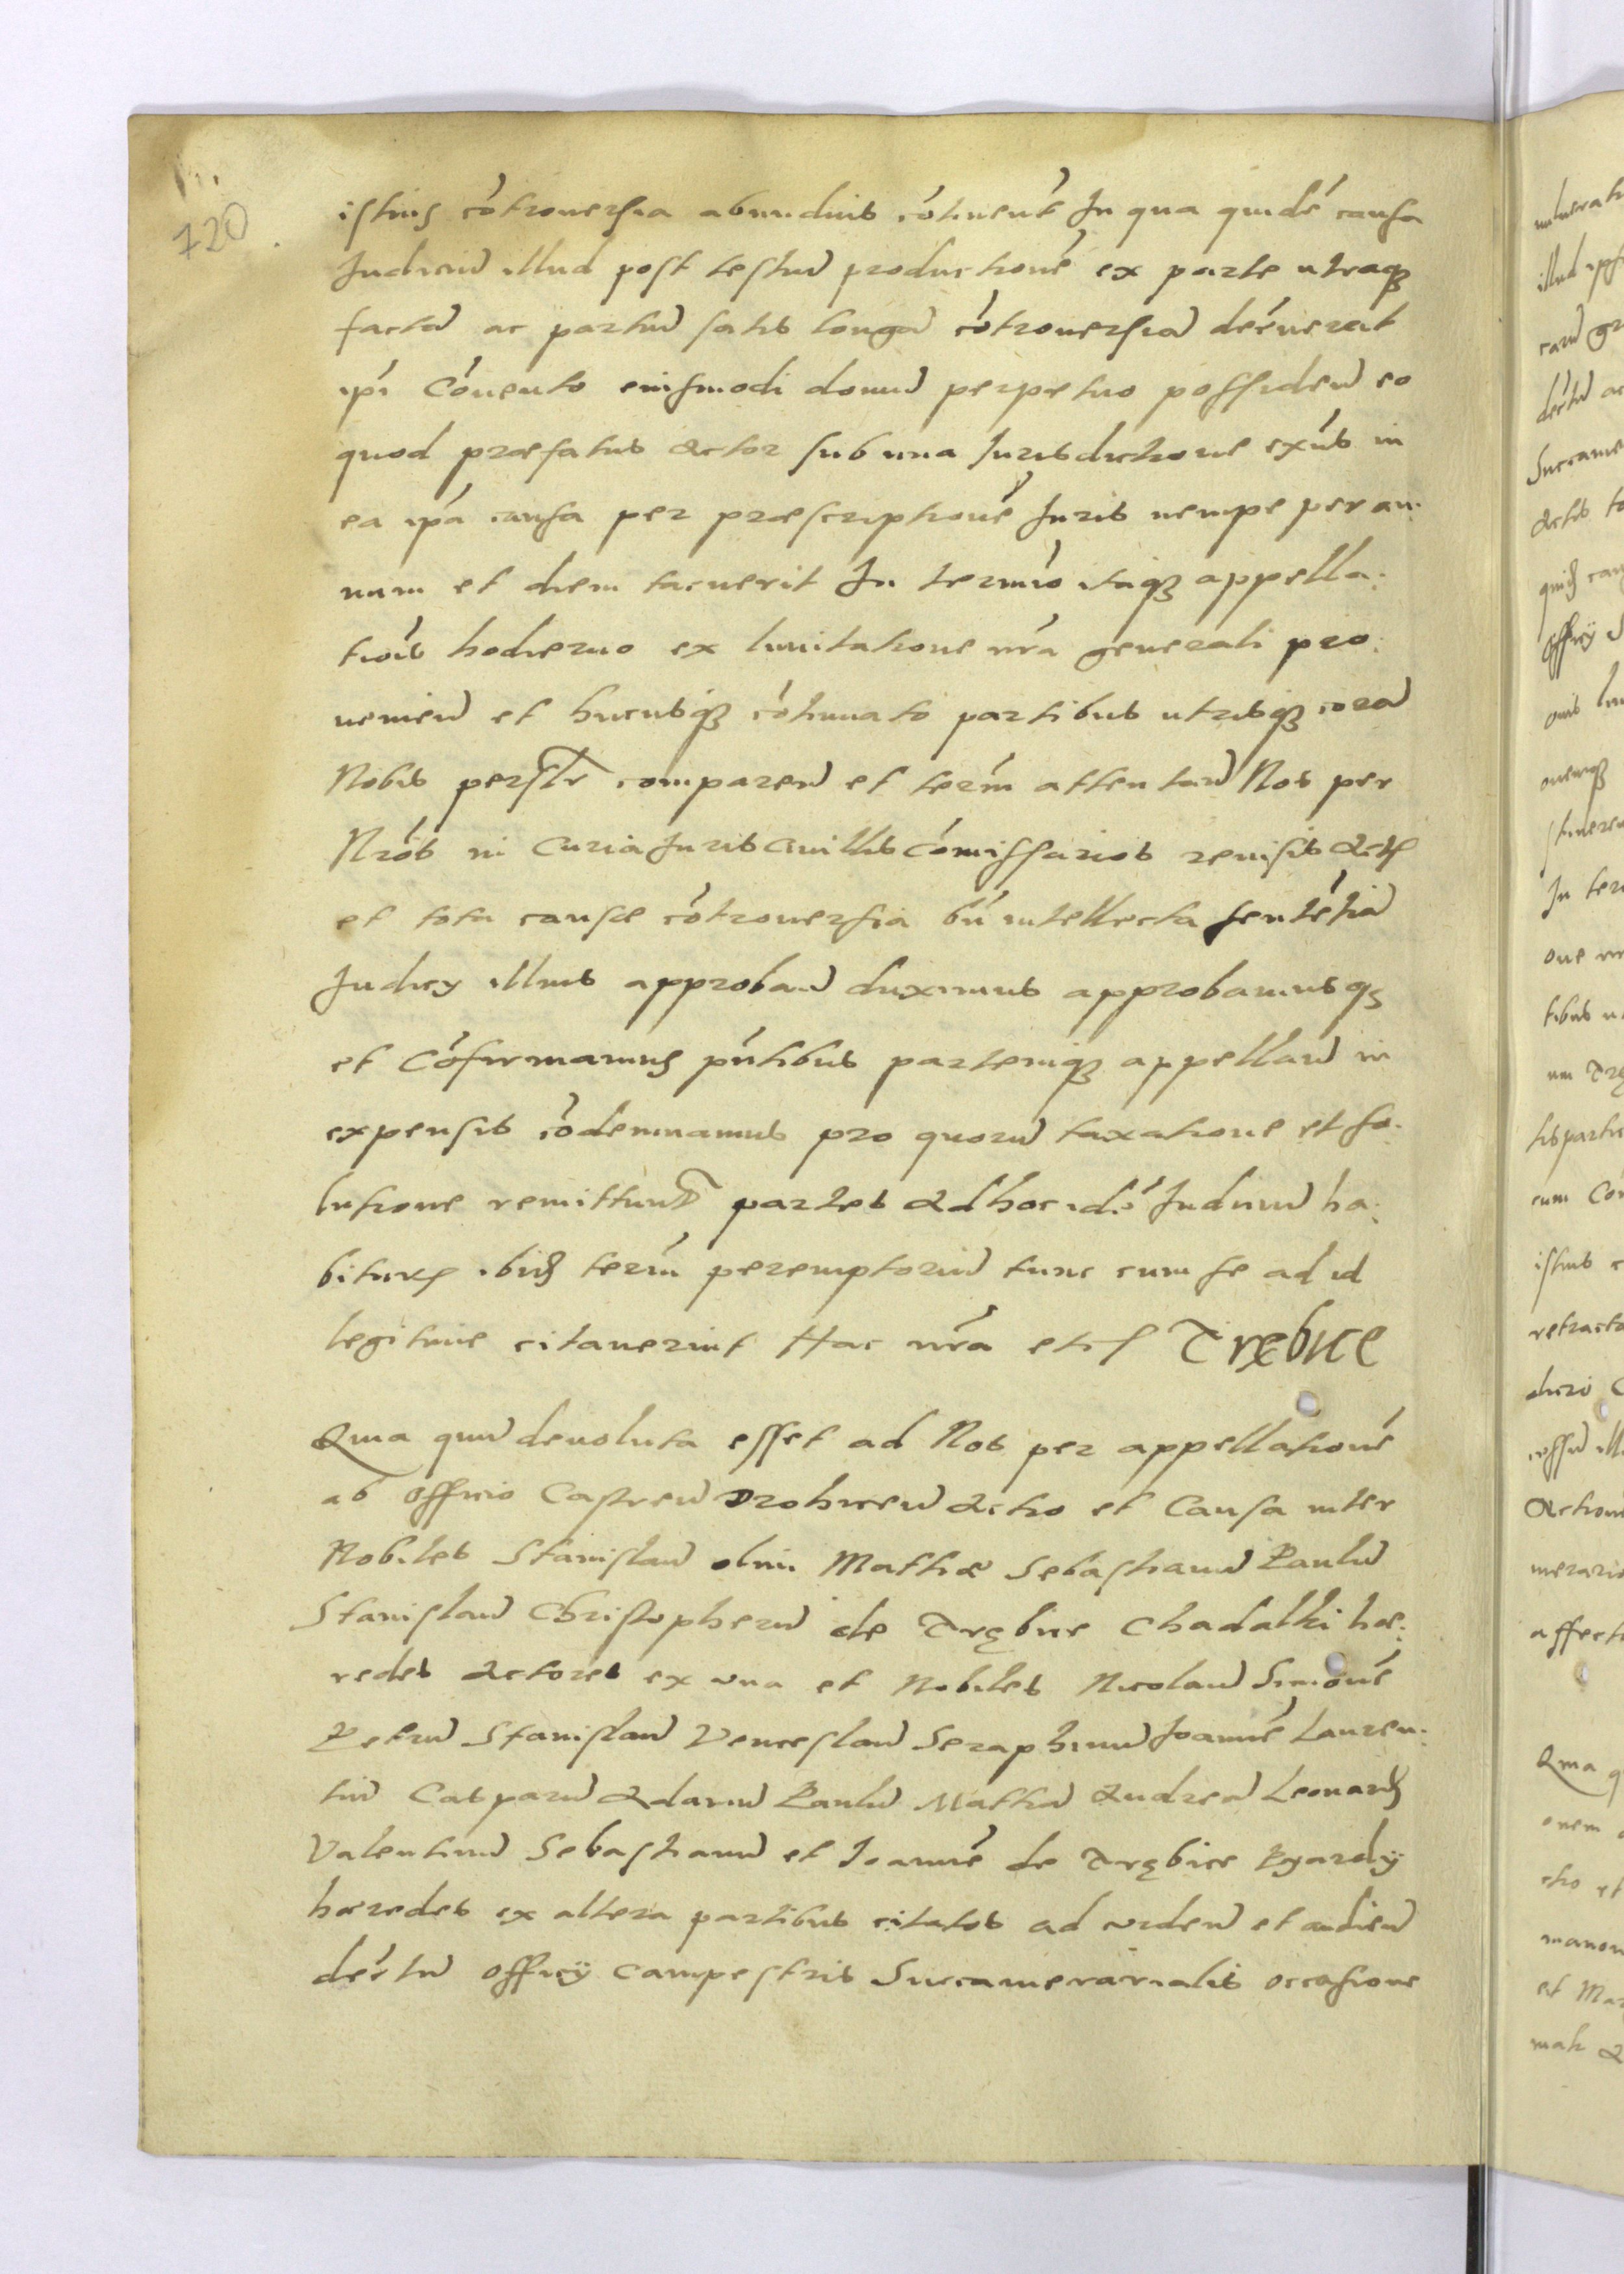 720
istius cōtrouersia abundius cōtinent In qua quidē causa
Judiciū illud post testiū productionē ex parte utraqȝ
factā ac partiū satis longā cōtrouersiā decreuerat
ipi Cōuento eiusmodi domū perpetuo possidendā eo
quod præfatus Actor sub una Jurisdictione exñs in
ea ipā causa per præscriptionē Juris nempe per an:
num et diem tacuerit In termīo itaqȝ appella:
tiōis hodierno ex limitatione nrā generali pro:
uenien̄ et hucusqȝ cōtinuato partibus utrisqȝ corā
Nobis personalr̄ comparen̄ et term̄ attentan̄ Nos per
Nrōs in Curia Juris Ciuilis Cōmissarios reuisis Actis
et tota causæ cōtrouersia bn̄ intellecta sentētiā
Judicy illius approban̄ duximus approbamusqȝ
et Cōfirmamus pn̄tibus partemqȝ appellan̄ in
expensis cōdemnamus pro quorū taxatione et so:
lutione remittunt̄ partes Ad hoc idē Judiciū ha:
biturȩ ibid term̄ peremptoriū tunc cum se ad id
legitime citauerint Hac nrā etc Trębice
Quia quū deuoluta esset ad Nos per appellationē
ab officio Castren̄ Drohicen̄ Actio et Causa inter
Nobiles Stanislaū olim Mathiæ Sebastianū Paulū
Stanislaū Christopherū de Trębice Chadalki hæ:
redes Actores ex una et Nobiles Nicolaū Simonē
Petrū Stanislaū Venceslaū Seraphinū Joannē Lauren:
tiū Casparū Adamū Paulū Mathiā Andreā Leonard
Valentinū Sebastianū et Joannē de Trębice Pyardy
hæredes ex altera partibus citatos ad viden̄ et audien̄
decrētū officÿ Campestris Succamerarialis occasione